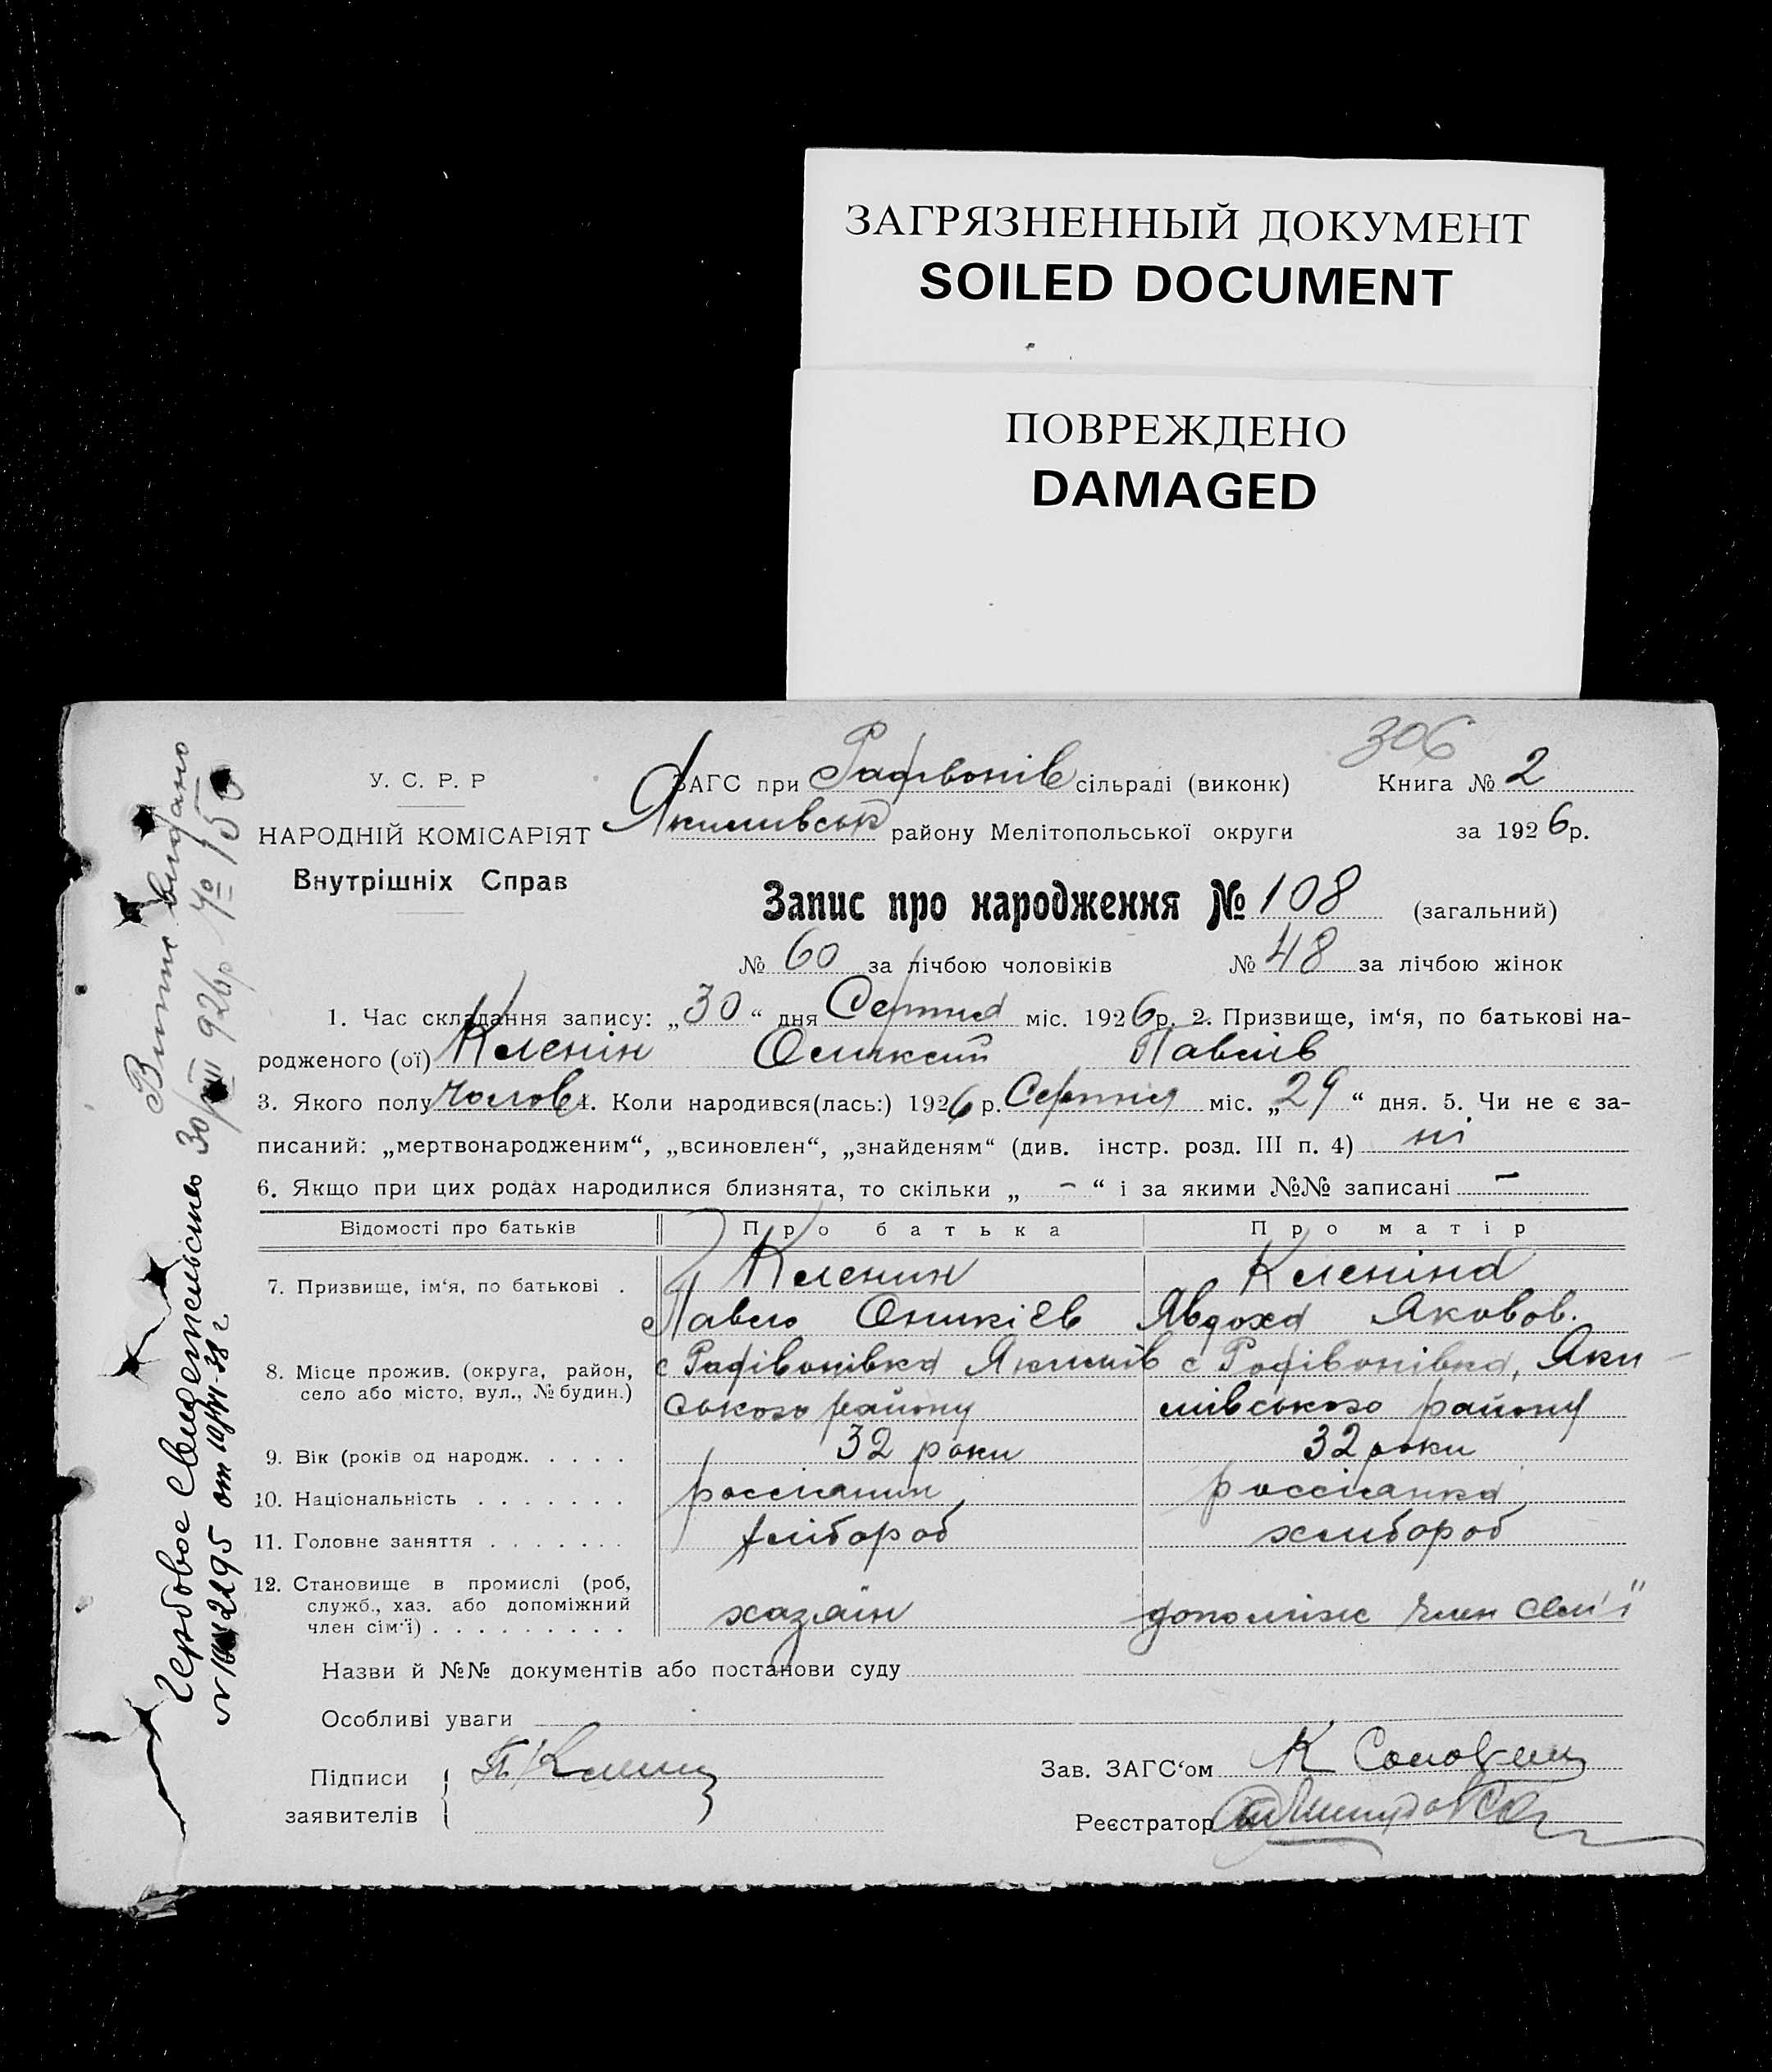 ЗАГРЯЗНЕННЫЙ ДОКУМЕНТ
SOILED DOCUMENT
ПОВРЕЖДЕНО
DAMAGED
306
У. С. Р. Р
ЗАГС при сільраді (виконк) Книга № 2
НАРОДНІЙ КОМІСАРІЯТ
Якимивськ району Мелітопольської округи за 1926р.
Внутрішніх Справ
Запис про народження № 108 (загальний)
№ 60 за лічбою чоловіків № 48 за лічбою жінок
1. Час складання запису: „30“ дня Серпня міс. 1926р. 2. Призвище, ім‘я, по батькові на-
родженого (ої) Кленін Павлів
3. Якого полу чолов 4. Коли народився(лась:) 1926 р. Серпня міс. „29“ дня. 5. Чи не є за-
писаний: „мертвонародженим“, „всиновлен“, „знайденям“ (див. інстр. розд. III п. 4) ні
6. Якщо при цих родах народилися близнята, то скільки „ – “ і за якими №№ записані –
Відомості про батьків Про батька Про матір
7. Призвище, ім‘я, по батькові .
Кленин Кленіна
Павло Оникіев Явдоха Яковов.
8. Місце прожив. (округа, район, село або місто, вул., № будин.)
с Рафівонівка Якимив с Рофівонівка, Яки-
ського району мівського району
9. Вік (років од народж. . . . . 32 роки 32 роки
10. Національність . . . . . . . россіянин россіянка
11. Головне заняття . . . . . . . хлібороб хлибороб
12. Становище в промислі (роб,
служб., хаз. або допоміжний
член сім‘ї) . . . . . . . . . хазяїн допоміжн член семʼї
Назви й №№ документів або постанови суду
Особливі уваги
Підписи
заявителів
П Кленин
Зав. ЗАГС‘ом К
Реєстратор
Витяг видано
30/VIII 926р
Гербовое свидетельство
2295 от 38 г